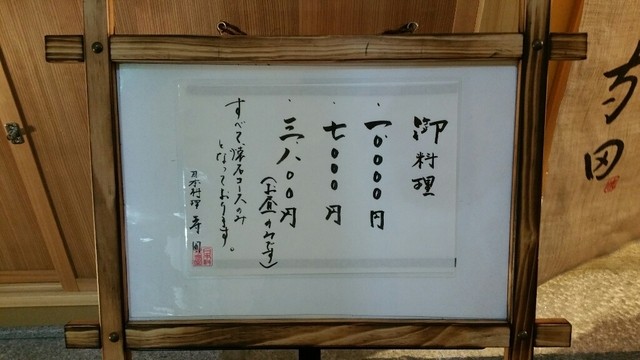 御料理
、一〇〇〇〇円
、七〇〇〇円
、三、八〇〇円
（お昼のみです）
すべて、懐石コースのみ
となっております。
日本料理 寿田
寿田